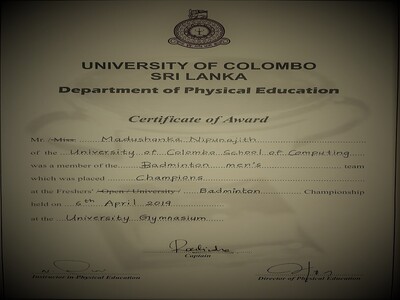 UNIVERSITY OF COLOMBO
SRI LANKA
Department of Physical Education
Certificate of Award
Mr. Miss Madushanka Nipunajith
of the University of Colombo School of Computing
was a member of the Badminton men's team
which was placed Champions
at the Freshers' Open / University Badminton Championship
held on 6th April 2019
at the University Gymnasium
Captain
Instructor in Physical Education
Director of Physical Education